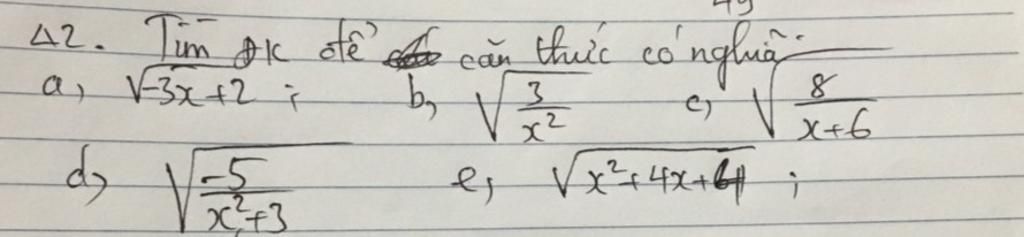 Δ2. Tìm ĐK để căn thức có nghĩa.
a, √-3x+2 ; b, √3/x² c, √8/x+6
d, √-5/x²+3 e, √x²+4x+4 ;